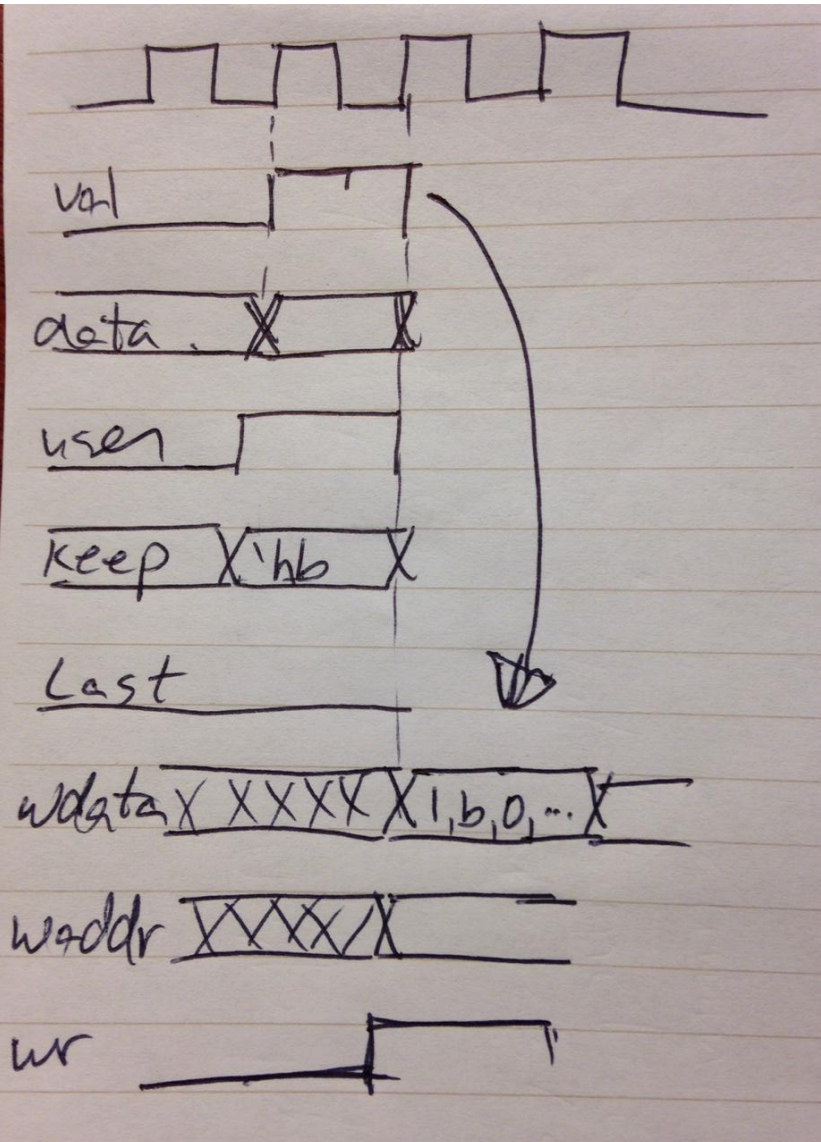 val
data
user
keep 'hb
Last
wdata X XXXX 1,b,0,...
waddr XXXX
wr